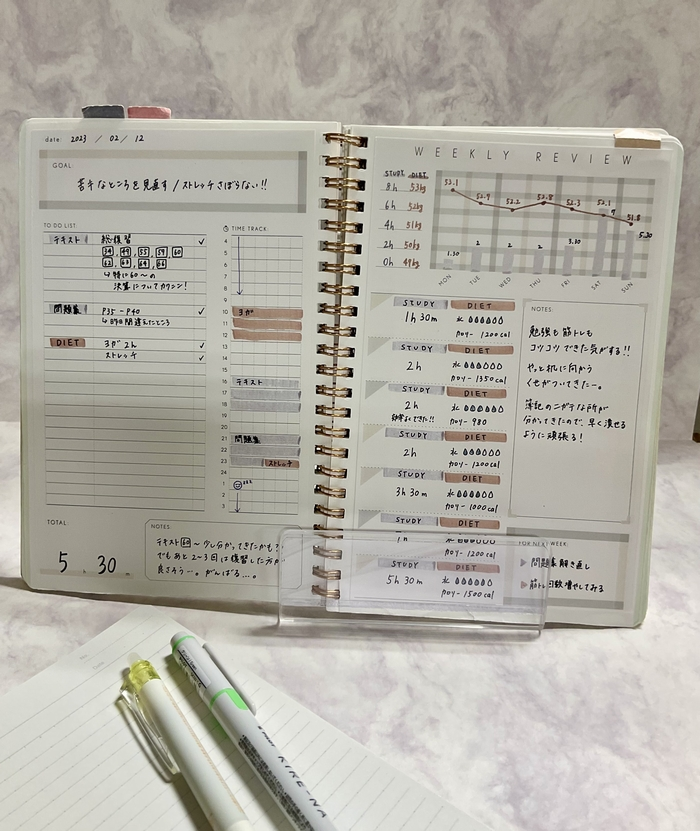 date: 2023 / 02 / 12
GOAL:
苦手なところを見直す / ストレッチさぼらない!!
TO DO LIST:
テキスト 総復習 ✓
34 49 55 59 60
62 63 64 66
↳ 特に60〜の
決算についてカクニン!
問題集 P35 - P40 ✓
↳ 昨日間違えたところ
DIET ヨガ 2h ✓
ストレッチ ✓
TIME TRACK
4
5
6
7
8
9
10 ヨガ
11
12
13
14
15
16 テキスト
17
18
19
20
21 問題集
22
23 ストレッチ
24
1 zzz
2
3
TOTAL:
5 h 30 m
NOTES:
テキスト60〜少し分かってきたかも?
でもあと2〜3回は復習した方が
良さそう…。がんばる…。
WEEKLY REVIEW
STUDY DIET
8h 53kg
6h 52kg
4h 51kg
2h 50kg
0h 49kg
53.1 52.9 52.2 52.8 52.3 52.1 51.8
1.30 2 2 2 3.30 5.30
MON TUE WED THU FRI SAT SUN
STUDY DIET
1h 30m 水
カロリー 1200cal
STUDY DIET
2h 水
カロリー 1350cal
STUDY DIET
2h 水
効率よくできた!! カロリー 980
STUDY DIET
2h 水
カロリー 1200cal
STUDY DIET
3h 30m 水
カロリー 1000cal
STUDY DIET
水
カロリー 1200cal
STUDY DIET
5h 30m 水
カロリー 1500cal
NOTES:
勉強も筋トレも
コツコツできた気がする!!
やっと机に向かう
くせがついてきたー。
簿記のニガテな所が
分かってきたので、早く潰せる
ように頑張る!
FOR NEXT WEEK:
問題集解き直し
筋トレ回数増やしてみる
PILOT KIRE-NA